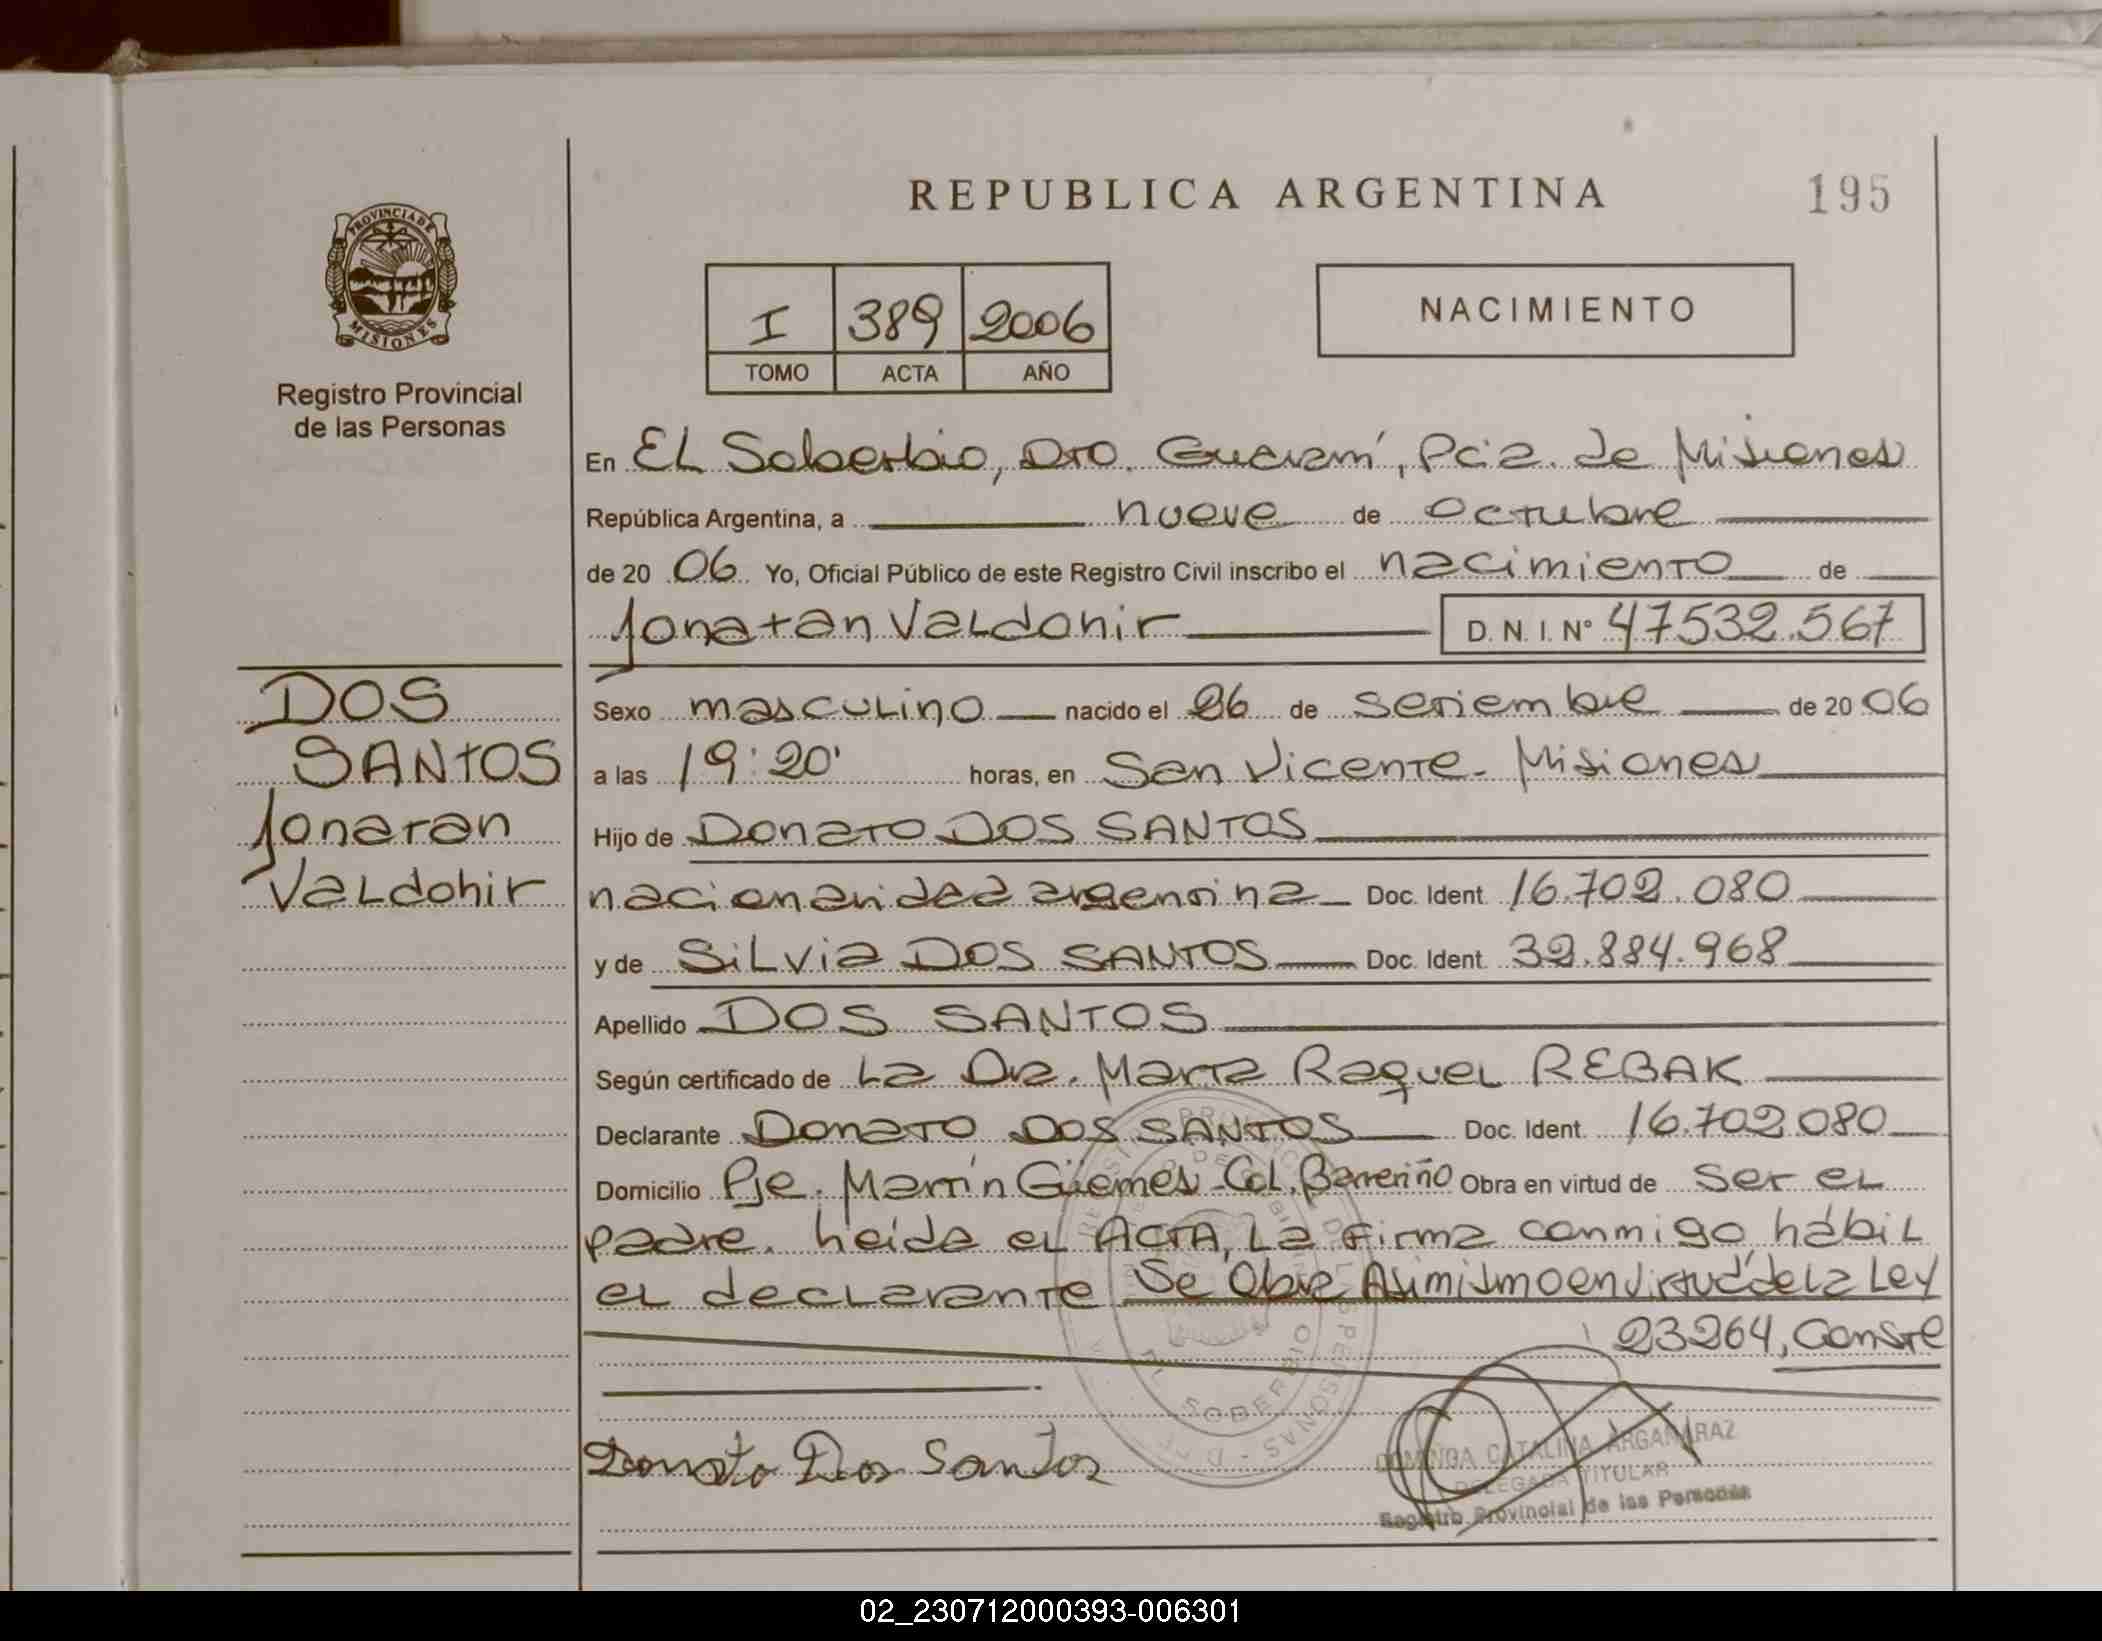 REPUBLICA ARGENTINA
195
PROVINCIA DE
MISIONES
Registro Provincial
de las Personas
I 389 2006
TOMO ACTA AÑO
NACIMIENTO
En EL Soberbio, Dto. Guaraní, Pcia. de Misiones
República Argentina, a nueve de octubre
de 2006 Yo, Oficial Público de este Registro Civil inscribo el nacimiento de
Jonatan Valdohir D. N. I. N° 47532.567
DOS
SANTOS
Jonatan
Valdohir
Sexo masculino nacido el 26 de setiembre de 2006
a las 19:20' horas, en San Vicente - Misiones
Hijo de Donato DOS SANTOS
nacionalidad argentina Doc. Ident. 16.702.080
y de Silvia DOS SANTOS Doc. Ident. 32.884.968
Apellido DOS SANTOS
Según certificado de La Dra. Marta Raquel REBAK
Declarante Donato DOS SANTOS Doc. Ident. 16.702.080
Domicilio Pje. Martín Güemes - Col. Barreriño Obra en virtud de ser el
padre. Leída el ACTA, La firma conmigo hábil
el declarante Se Obra Asimismo en virtud de la Ley
23264, Conste
Donato Dos Santos
CATALINA ARGAÑARAZ
DELEGADA TITULAR
Registro Provincial de las Personas
SOBERBIO
02_230712000393-006301